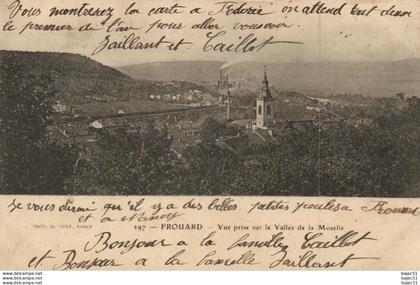 Vous montrerez la carte a Fedorie on attend tout dem
le premier de l'an pour aller vous voir.
Jaillant et Caillot
Je vous dirai qu'il y a des belles petites poules a Frouard
et a Nancy
PHOT. G. CUNY, NANCY
197 - FROUARD - Vue prise sur la Vallée de la Moselle
Bonjour a la famille Caillot
et Bonjour a la famille Jaillant
bajec51
bajec51
bajec51
bajec51